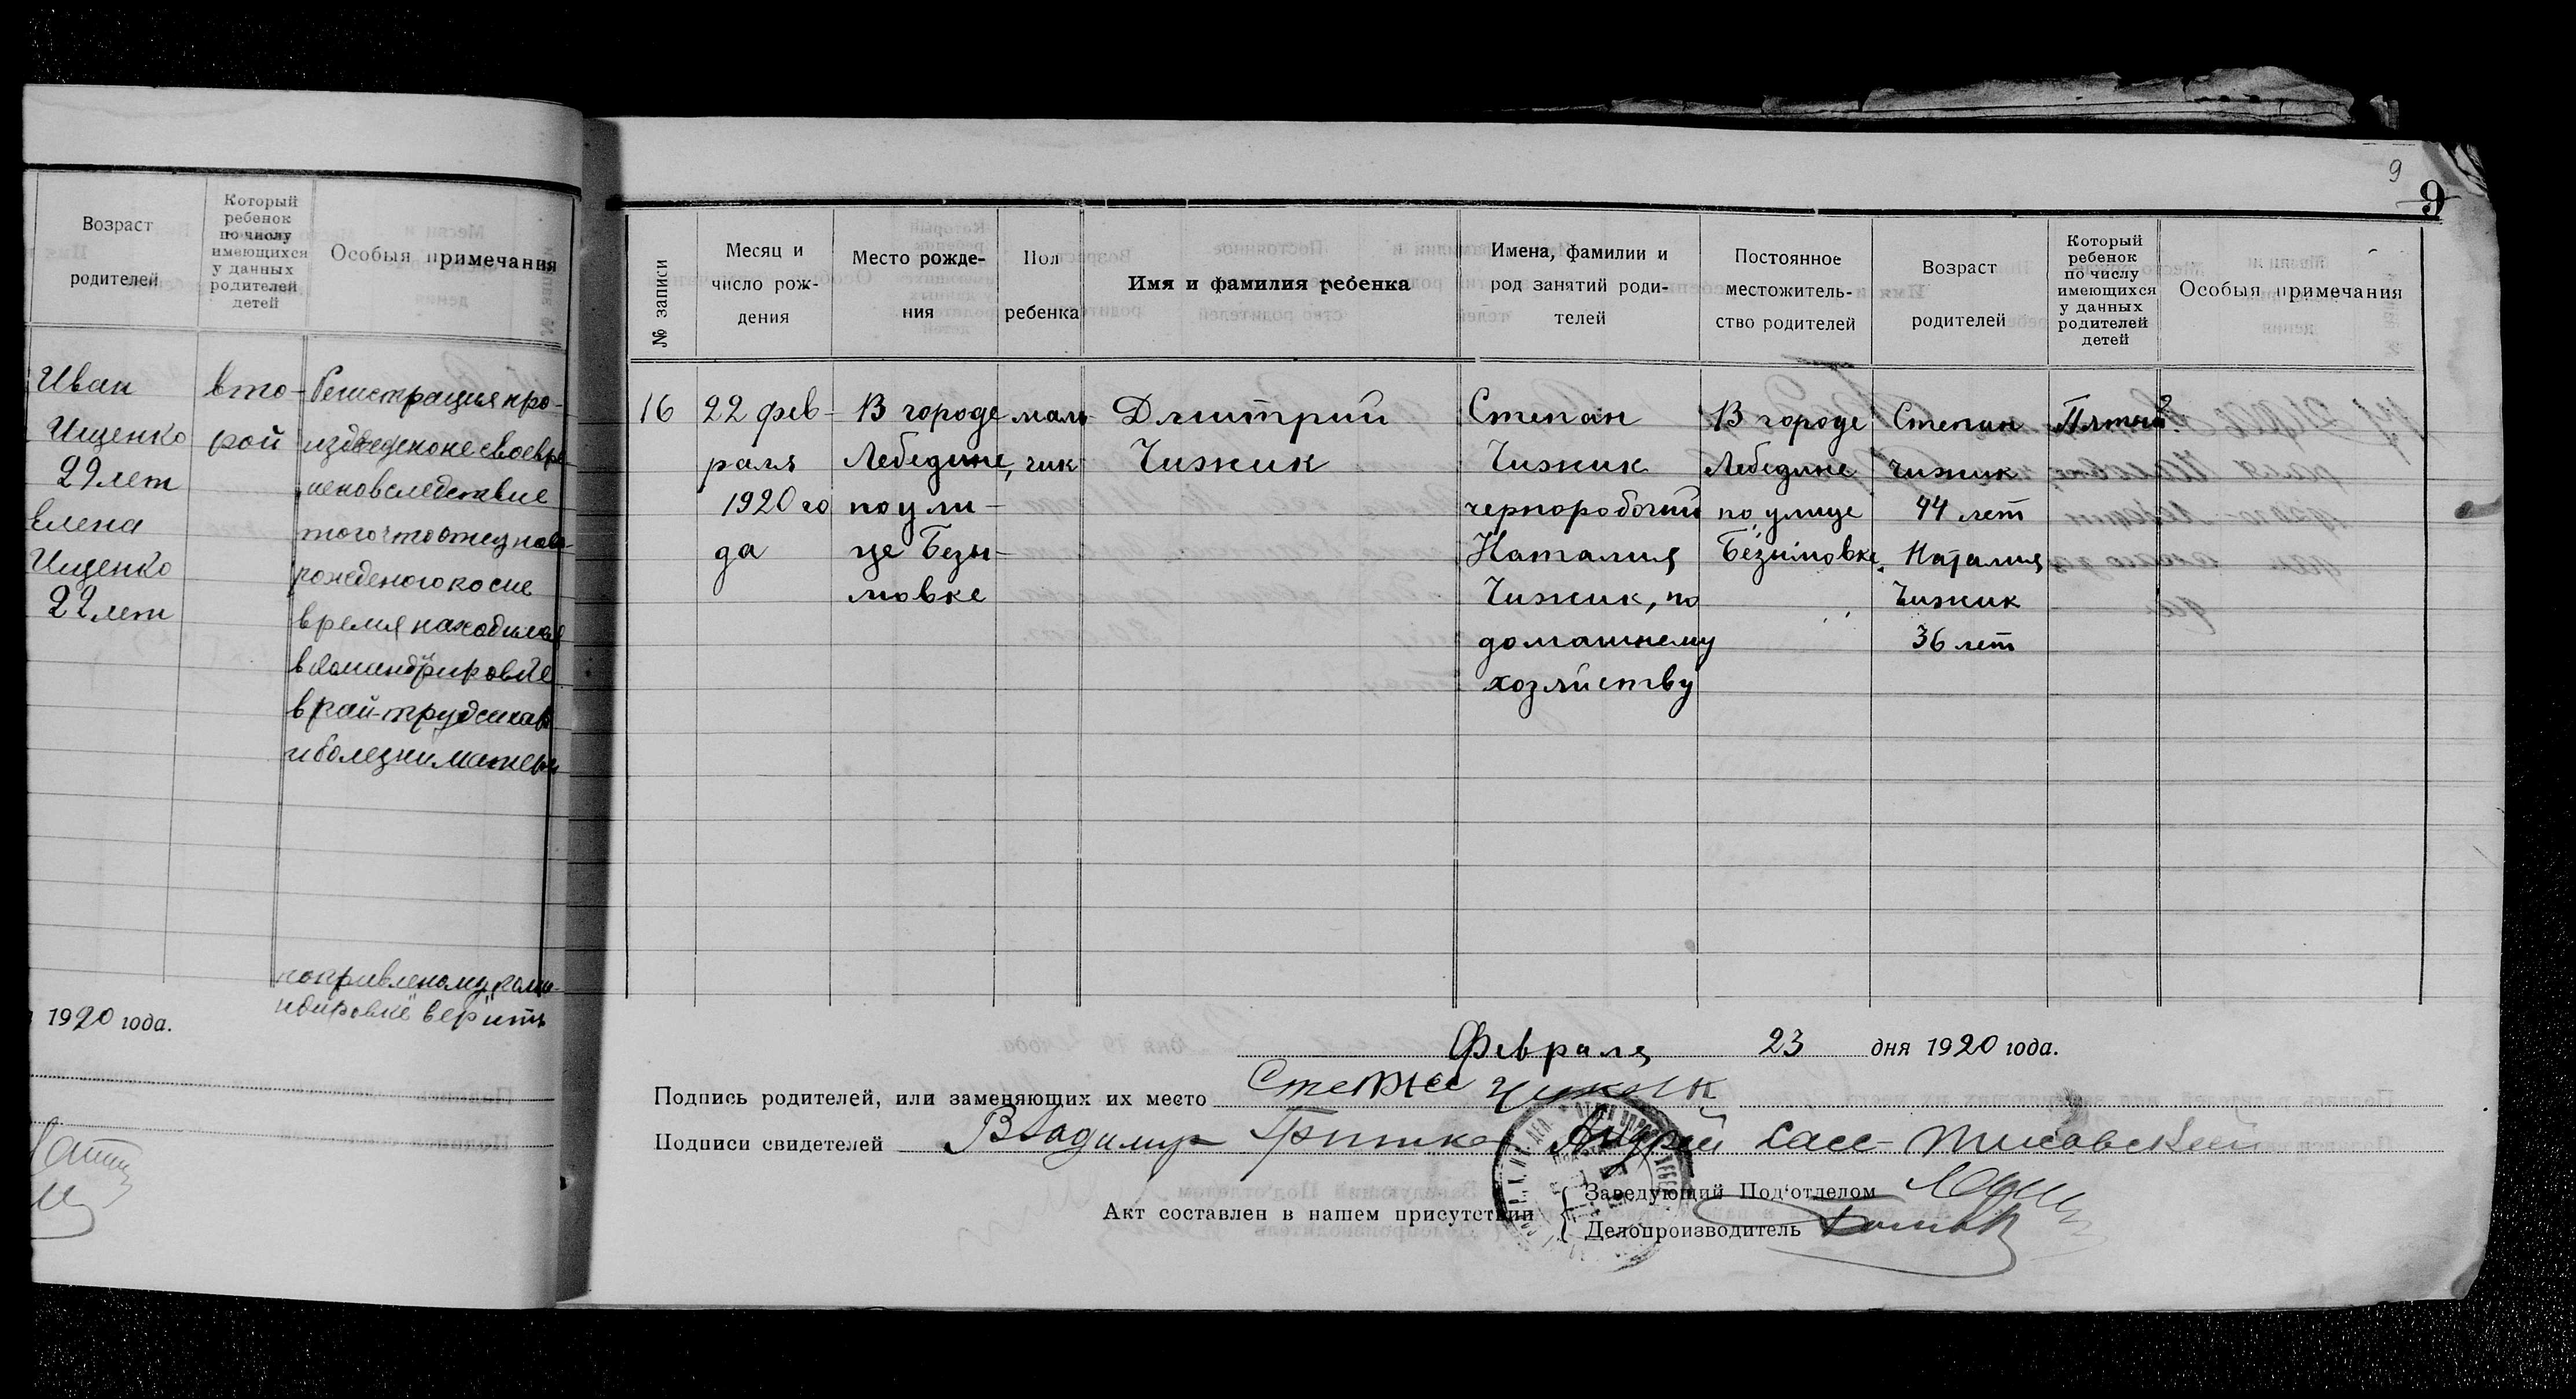 Возраст
родителей
Который
ребенок
по числу
имеющихся
у данных
родителей
детей
Особыя примечания
Иван
Ищенко
29 лет
Елена
Ищенко
22 лет
вто-
рой
Регистрация про-
вследствие
того что отец ново-
рожденого по сие
время находился
в
в
и болезни матери
верить
1920 года.
9
9
№ записи
Месяц и
число рож-
дения
Место рожде-
ния
Пол
ребенка
Имя и фамилия ребенка
Имена, фамилии и
род занятий роди-
телей
Постоянное
местожитель-
ство родителей
Возраст
родителей
Который
ребенок
по числу
имеющихся
у данных
родителей
детей
Особыя примечания
16
22 фев-
раля
1920 го
да
В городе
Лебедине,
по ули-
це Безы-
мовке
маль
чик
Дмитрий
Чижик
Степан
Чижик
черноробочий
Наталия
Чижик, по
домашнему
хозяйству
В городе
Лебедине
по улице
Безимовке.
Степан
Чижик
44 лет
Наталия
Чижик
36 лет
Пятый
Февраля 23 дня 1920 года.
Подпись родителей, или заменяющих их место
Подписи свидетелей Владимир Андрей Сасс-
Акт составлен в нашем присутствии
Заведующий Под'отделом
Делопроизводитель